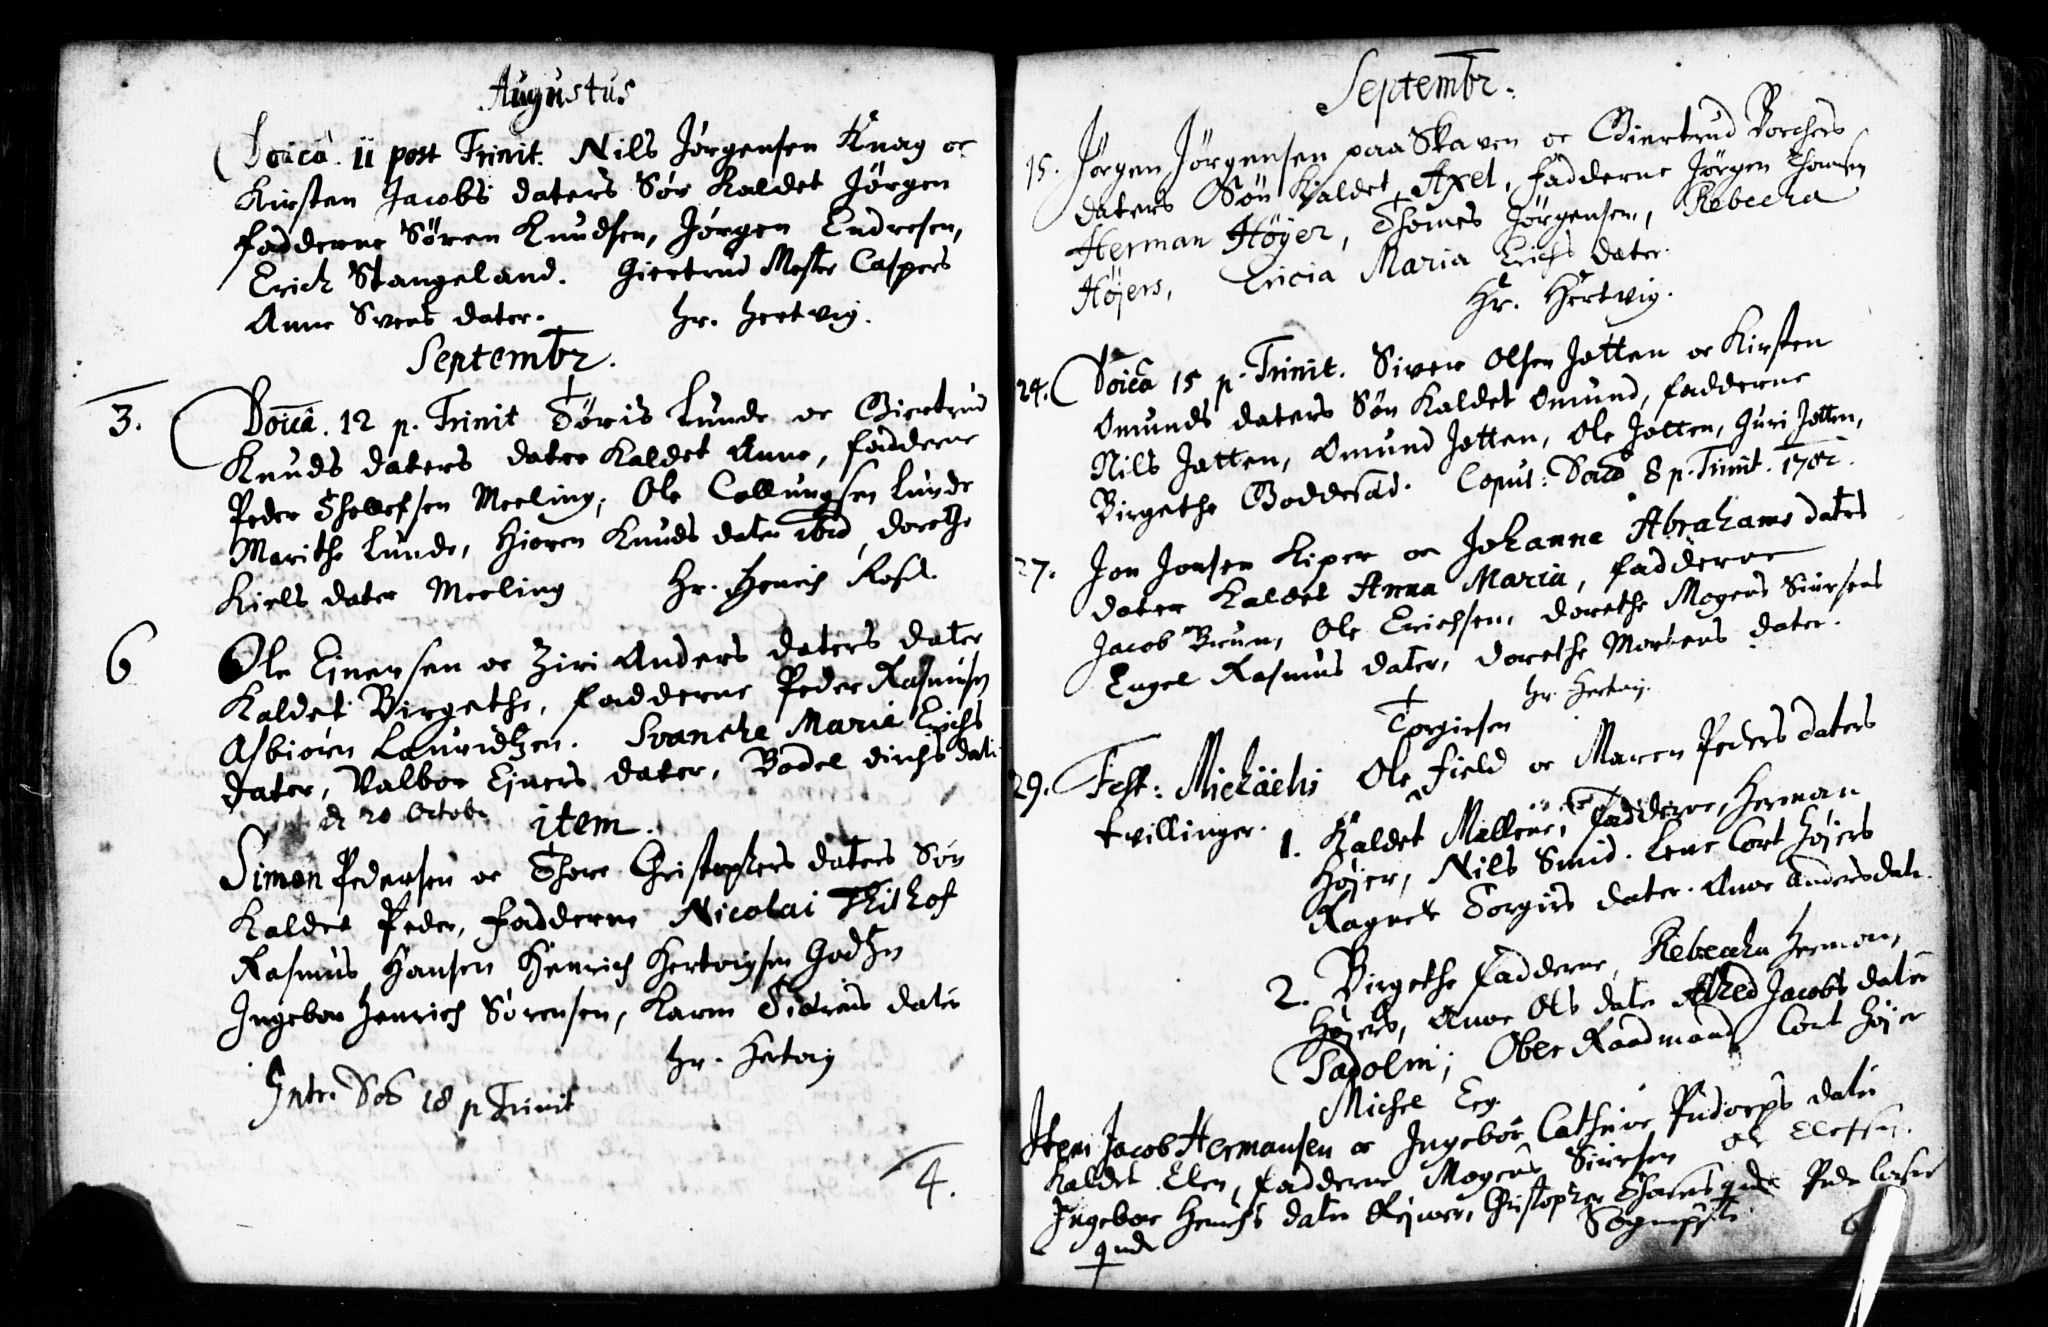 Augustus
Doicâ. 11 post Trinit. Nils Jørgensen Knag oc
Kirsten Jacobs daters Søn kaldet Jørgen
fadderne Søren Knudsen, Jørgen Endresen,
Erich Stangeland. Giertrud Mester Caspers
Anne Svens dater. hr. Hertvig.
Septembr.
3. Doicâ. 12 p. Trinit Töris Lunde oc Giertrud
Knuds daters dater kaldet Anne, fadderne
Peder Meeling, Ole Lunde
Marithe Lunde, Knuds dater ibid, dorethe
Kiels dater Meeling Hr. Henrich
6 Ole Ejversen oc Ziri Anders daters dater
kaldet Birgethe, fadderne Peder Rasmusen
Asbiörn Lauridtzen. Maria Erichs
dater, Valbor Ejvers dater, Bodel dirchs dater
d 20 Octobr item.
Simon Pedersen oc Thore Christophers daters Søn
kaldet Peder, fadderne Nicolai
Rasmus Hansen Henrich Hertvigsen Godtzen
Ingebor Henrich Sørensen, Karen dater
hr. Hertvig
Intr. 18 p Trinit
4.
Septembr.
15. Jørgen Jörgensen paa Skaven oc Giertrud Borchers
daters Søn kaldet Axel, fadderne Jørgen
Herman Höyer, Thomes Jørgensen, Rebecka
Höjers, Ericia Maria Erichs dater.
Hr. Hertvig.
24. Doicâ 15 p. Trinit. Siver Olsen Jatten oc Kirsten
Omunds daters Søn kaldet Omund, fadderne
Nils Jatten, Omund Jatten, Ole Jatten, Guri Jatten,
Birgethe Goddesad. Copul: 8 p. Trinit. 1702.
27. Jon Jonsen Kiper oc Johanna Abrahams daters
dater kaldet Anna Maria, fadderne
Jacob Bruun, Ole Erichsen, dorethe Mogens Siversens
Engel Rasmus dater, dorethe Mortens dater.
hr. Hertvig.
Torgiesen
29. Fest: Michäelis Ole Field oc Maren Peders daters
tvillinger. 1. Kaldet Mallene, fadderne, Herman
Höjer, Nils Smid. Lene Cort Höjers
Ragnel Torgies dater. Anne Anders dater.
2. Birgethe fadderne, Rebeccha Herman
Höjers, Anne Ols dater Jacobs dater
Tadolm; Ober Raadmand Cort Höjer
Michel
Item Jacob Hermansen oc Ingebor Cathrine Pudorps dater
kaldet Elen, fadderne Mogens Siversen
Ingebor Henrichs dater Christopher Peder